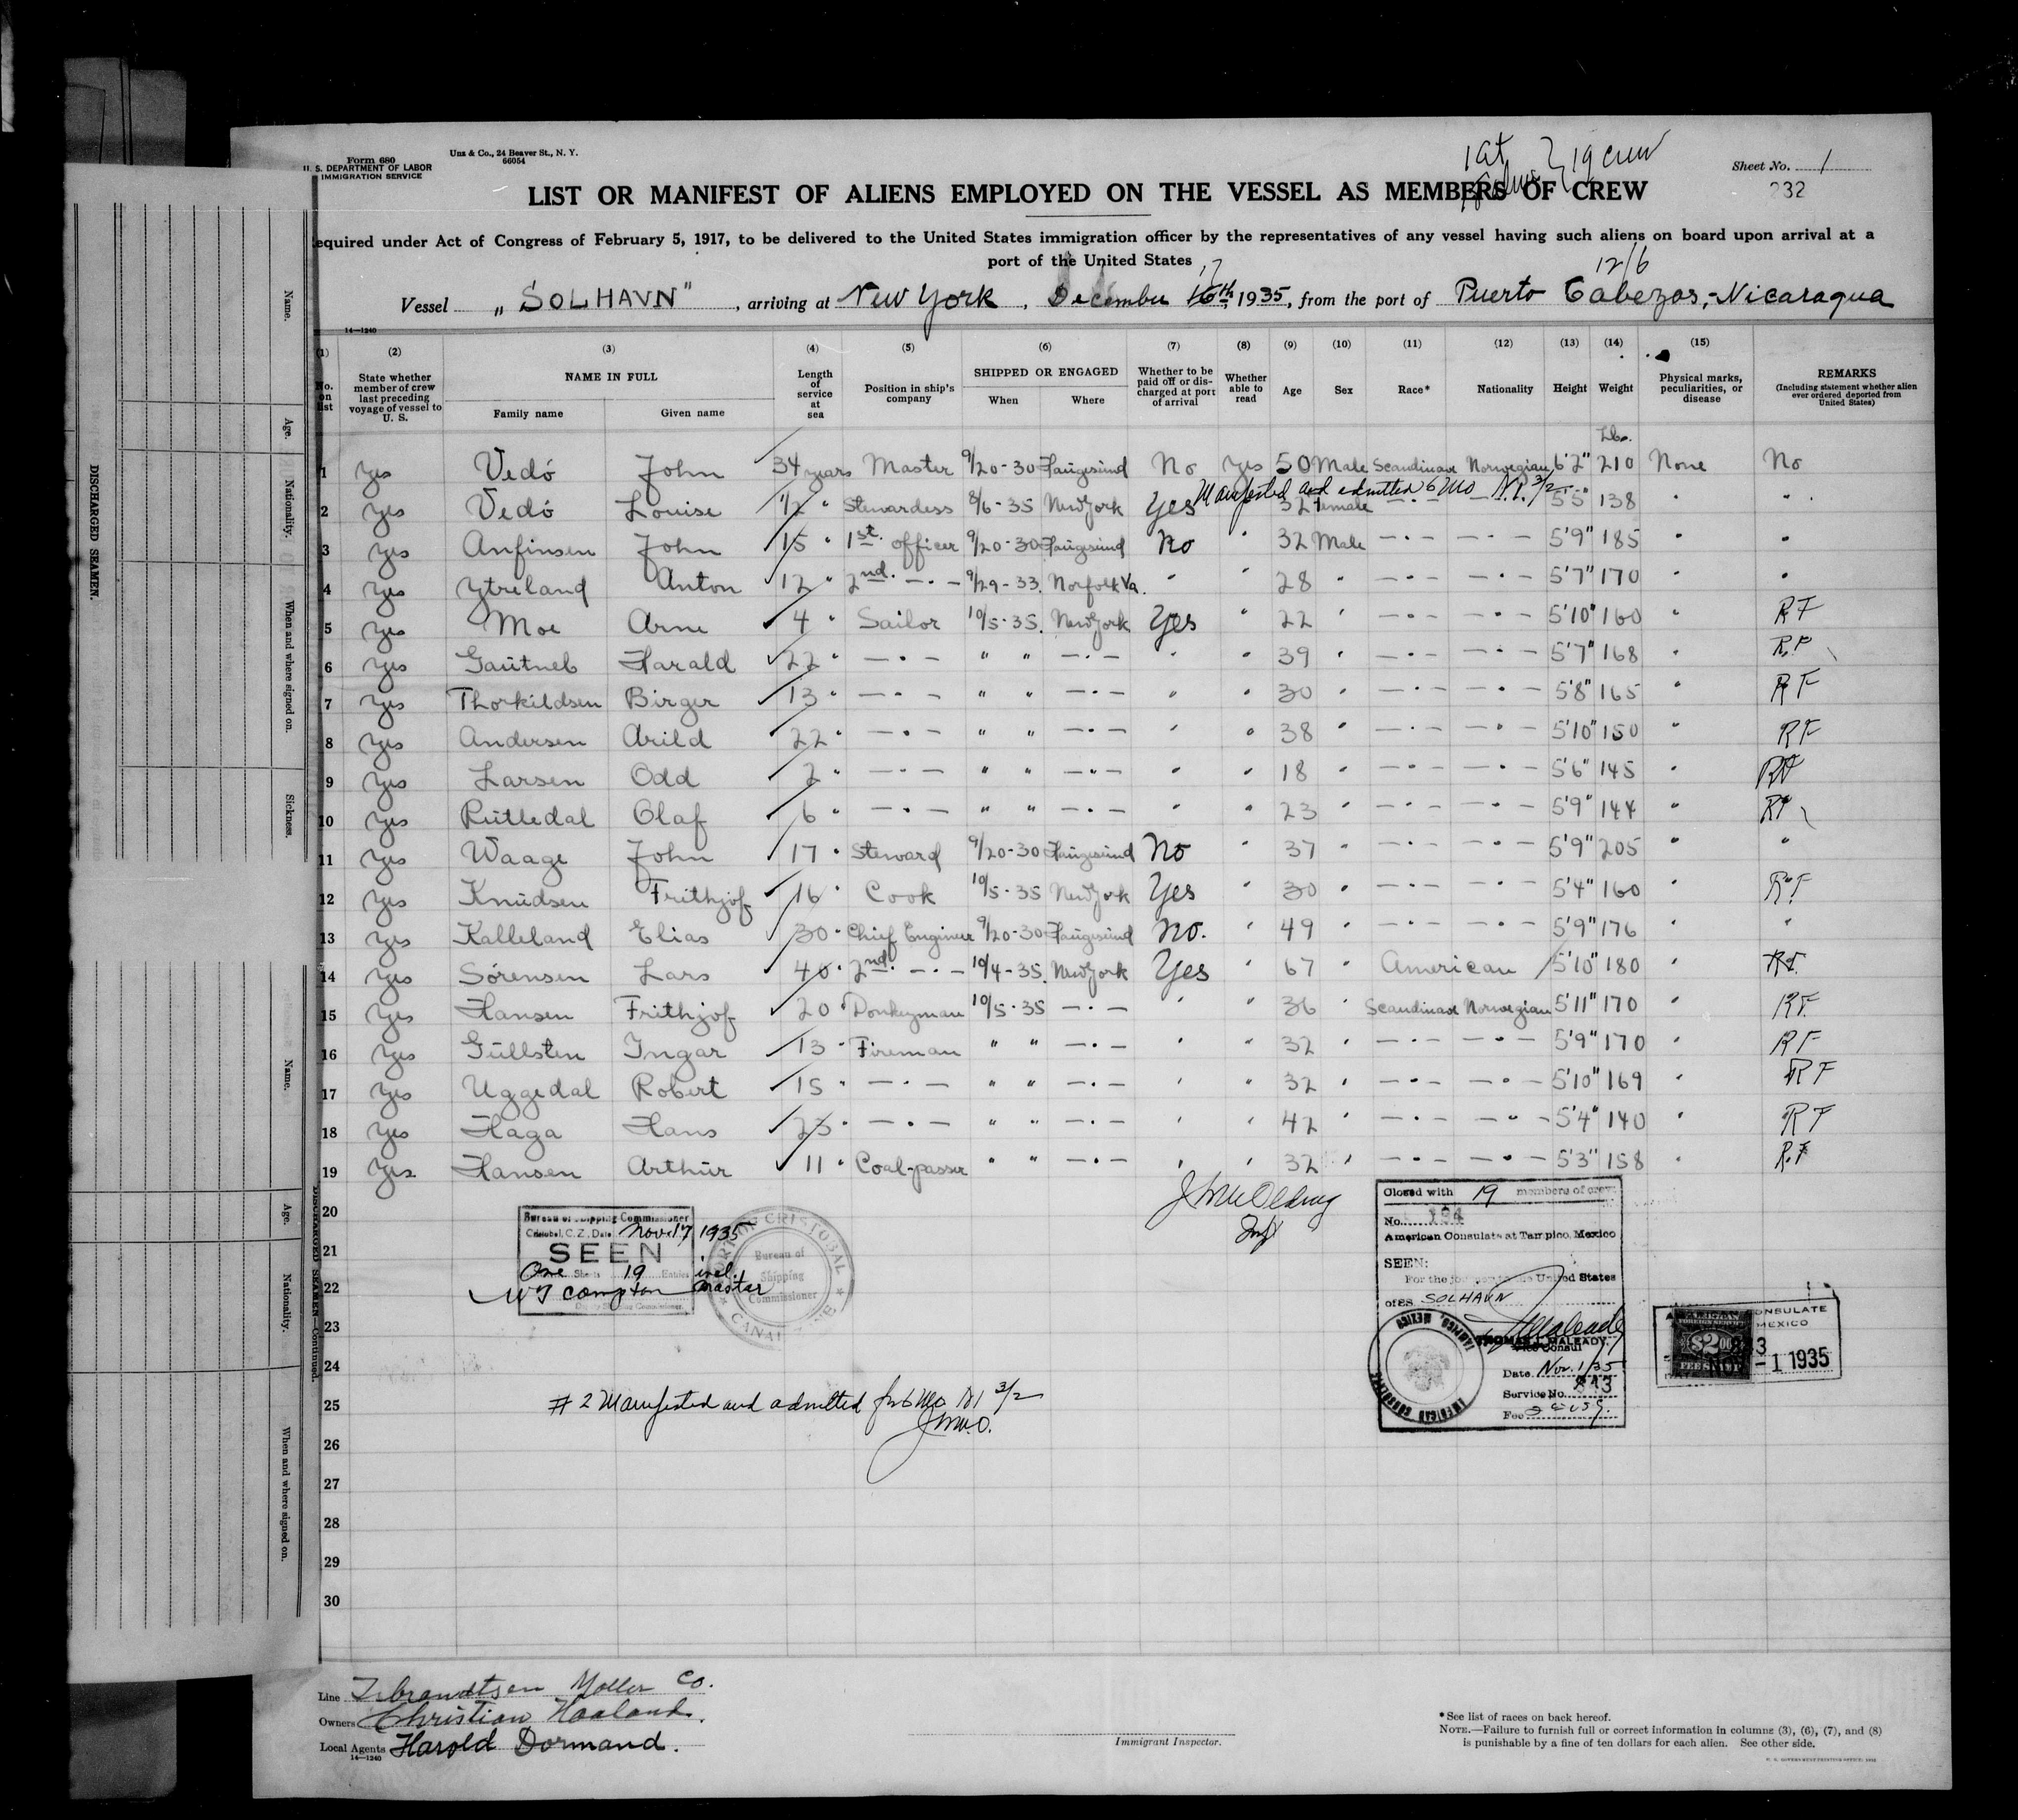 Form 680
U. S. DEPARTMENT OF LABOR
IMMIGRATION SERVICE
Unz & Co., 24 Beaver St., N. Y.
66054
19 crew
Sheet No. 1
232
LIST OR MANIFEST OF ALIENS EMPLOYED ON THE VESSEL AS MEMBERS OF CREW
equired under Act of Congress of February 5, 1917, to be delivered to the United States immigration officer by the representatives of any vessel having such aliens on board upon arrival at a
port of the United States
12/6
17
Vessel „ SOLHAVN" , arriving at New York , December 16th, 1935, from the port of Puerto Cabezas,-Nicaragua
14—1240
(1) (2) (3) (4) (5) (6) (7) (8) (9) (10) (11) (12) (13) (14) (15)
No. on list
State whether member of crew last preceding voyage of vessel to U. S.
NAME IN FULL
Family name Given name
Length of service at sea
Position in ship's company
SHIPPED OR ENGAGED
When Where
Whether to be paid off or discharged at port of arrival
Whether able to read
Age Sex Race* Nationality Height Weight
Physical marks, peculiarities, or disease
REMARKS
(Including statement whether alien ever ordered deported from United States)
Lbs.
1 Yes Vedó John 34 years Master 9/20-30 Haugesund No Yes 50 Male Scandinav Norwegian 6'2" 210 None No
Manifested and admitted 6 Mo N.1. 3/2
2 Yes Vedó Louise 1/2 " Stewardess 8/6-35 New York Yes 32 female —·— —·— 5'5" 138 " "
3 Yes Anfinsen John 15 " 1st. officer 9/20-30 Haugesund No " 32 Male —·— —·— 5'9" 185 " "
4 Yes Ytreland Anton 12 " 2nd. —·— 9/29-33. Norfolk Va. " " 28 " —·— —·— 5'7" 170 " "
5 Yes Moe Arne 4 " Sailor 10/5-35. New York Yes " 22 " —·— —·— 5'10" 160 " RF
6 Yes Gautneb Harald 22 " —·— " " —·— " " 39 " —·— —·— 5'7" 168 " R.F.
7 Yes Thorkildsen Birger 13 " —·— " " —·— " " 30 " —·— —·— 5'8" 165 " RF
8 Yes Andersen Arild 22 " —·— " " —·— " " 38 " —·— —·— 5'10" 150 " RF
9 Yes Larsen Odd 2 " —·— " " —·— " " 18 " —·— —·— 5'6" 145 " RF
10 Yes Rutledal Olaf 6 " —·— " " —·— " " 23 " —·— —·— 5'9" 144 " RF
11 Yes Waage John 17 " Steward 9/20-30 Haugesund No " 37 " —·— —·— 5'9" 205 " "
12 Yes Knudsen Frithjof 16 " Cook 10/5-35 New York Yes " 30 " —·— —·— 5'4" 160 " R.F.
13 Yes Kalleland Elias 30 " Chief Engineer 9/20-30 Haugesund No. " 49 " —·— —·— 5'9" 176 " "
14 Yes Sörensen Lars 40 " 2nd. —·— 10/4-35. New York Yes " 67 " American 5'10" 180 " RF.
15 Yes Hansen Frithjof 20 " Donkeyman 10/5-35 —·— " " 36 " Scandinav Norwegian 5'11" 170 " RF.
16 Yes Gullsten Ingar 13 " Fireman " " —·— " " 32 " —·— —·— 5'9" 170 " RF
17 Yes Uggedal Robert 15 " —·— " " —·— " " 32 " —·— —·— 5'10" 169 " RF
18 Yes Haga Hans 25 " —·— " " —·— " " 42 " —·— —·— 5'4" 140 " RF
19 Yes. Hansen Arthur 11 " Coal-passer " " —·— " " 32 " —·— —·— 5'3" 158 " R.F
20
21
22
23
24
25
26
27
28
29
30
Bureau of Shipping Commissioner
Cristobal, C. Z., Date Nov. 17, 1935
SEEN
One Sheets 19 Entries incl.
W J Compton Master
Deputy Shipping Commissioner.
PORT OF CRISTOBAL
Bureau of
Shipping
Commissioner
CANAL ZONE
Closed with 19 members of crew
No. 194
American Consulate at Tampico, Mexico
SEEN:
For the journey to the United States
of SS SOLHAVN
THOMAS J. MALEADY
Vice Consul
Date Nov. 1/35
Service No. 843
Fee
AMERICAN CONSULATE
TAMPICO, MEXICO
AMERICAN CONSULATE
MEXICO
AMERICAN
FOREIGN SERVICE
$2.00
FEE STAMP
NOV -1 1935
# 2 Manifested and admitted for 6 Mo N1 3/2
J.M.O.
Line Isbrandtsen Moller Co.
Owners Christian Haaland.
Local Agents Harold Dormand.
14—1240
Immigrant Inspector.
* See list of races on back hereof.
NOTE.—Failure to furnish full or correct information in columns (3), (6), (7), and (8)
is punishable by a fine of ten dollars for each alien. See other side.
Name.
Age.
Nationality.
When and where signed on.
Sickness.
DISCHARGED SEAMEN.
Name.
Age.
Nationality.
When and where signed on.
DISCHARGED SEAMEN—Continued.